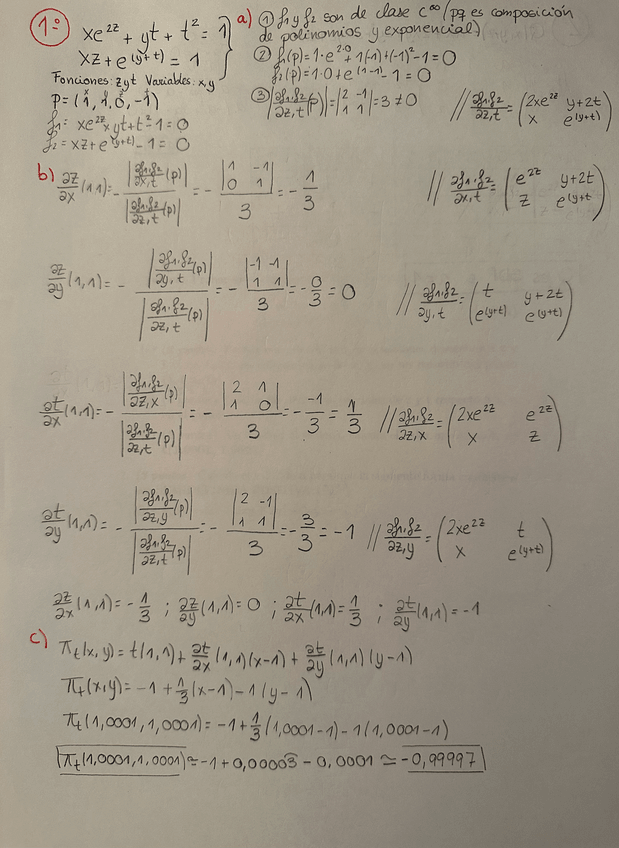 1º
xe^{2z} + yt + t² = 1
xz + e^{(y+t)} = 1
Fonciones: z y t Variables: x, y
P = (1, 1, 0, -1)
f1 = xe^{2z} + yt + t² - 1 = 0
f2 = xz + e^{(y+t)} - 1 = 0
a) ① f1 y f2 son de clase C^∞ (pq es composición
de polinomios y exponencial)
② f1(p) = 1·e^{2·0} + 1(-1) + (-1)² - 1 = 0
f2(p) = 1·0 + e^{(1-1)} - 1 = 0
③ |∂f1,f2/∂z,t (p)| = |2 -1; 1 1| = 3 ≠ 0 // ∂f1,f2/∂z,t = (2xe^{2z} y+2t; x e^{(y+t)})
b) ∂z/∂x (1,1) = - |∂f1,f2/∂x,t (p)| / |∂f1,f2/∂z,t (p)| = - |1 -1; 0 1| / 3 = - 1/3 // ∂f1,f2/∂x,t = (e^{2z} y+2t; z e^{(y+t)})
∂z/∂y (1,1) = - |∂f1,f2/∂y,t (p)| / |∂f1,f2/∂z,t (p)| = - |-1 -1; 1 1| / 3 = - 0/3 = 0 // ∂f1,f2/∂y,t = (t y+2t; e^{(y+t)} e^{(y+t)})
∂t/∂x (1,1) = - |∂f1,f2/∂z,x (p)| / |∂f1,f2/∂z,t (p)| = - |2 1; 1 0| / 3 = - -1/3 = 1/3 // ∂f1,f2/∂z,x = (2xe^{2z} e^{2z}; x z)
∂t/∂y (1,1) = - |∂f1,f2/∂z,y (p)| / |∂f1,f2/∂z,t (p)| = - |2 -1; 1 1| / 3 = - 3/3 = -1 // ∂f1,f2/∂z,y = (2xe^{2z} t; x e^{(y+t)})
∂z/∂x (1,1) = - 1/3 ; ∂z/∂y (1,1) = 0 ; ∂t/∂x (1,1) = 1/3 ; ∂t/∂y (1,1) = -1
c) π_t(x,y) = t(1,1) + ∂t/∂x (1,1)(x-1) + ∂t/∂y (1,1)(y-1)
π_t(x,y) = -1 + 1/3 (x-1) - 1(y-1)
π_t(1,0001, 1,0001) = -1 + 1/3 (1,0001-1) - 1(1,0001-1)
π_t(1,0001, 1,0001) ≃ -1 + 0,00003 - 0,0001 ≃ -0,99997